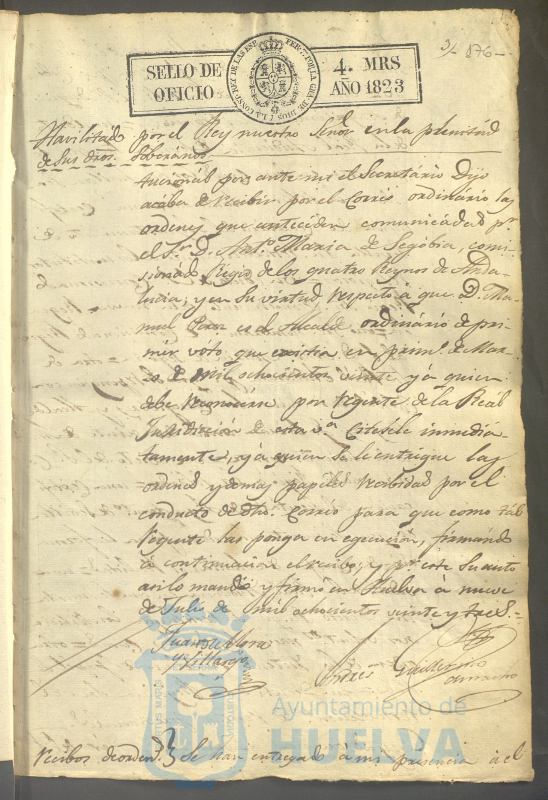 3/- 876-
SELLO DE OFICIO
4. MRS AÑO 1823
Havilitado por el Rey nuestro Señor en la plenitud
de Sus dros. Soberanos
tucional por ante mi el Secretario Dijo
acaba de recibir por el Correo ordinario las
ordenes que anteceden comunicadas pr.
el Sr. D. Anto. Maria de Segobia, comi-
sionado Regio de los quatro Reynos de Anda-
lucia; y en su virtud respecto á que D. Ma-
nuel Perez es el Alcalde ordinario de pri-
mer voto que existia en primo. de Mar-
zo de mil ochocientos veinte y á quien
debe reconocerse por regente de la Real
Jurisdicion de esta va. Citesele inmedia-
tamente, y á quien se le entregue las
ordenes y demas papeles recibidos por el
conducto de dho. Correo para que como tal
regente las ponga en egecucion, firmando
á continuacion el recibo; y pr. este su auto
asi lo mandó y firmó en Huelva á nueve
de Julio de mil ochocientos veinte y tres.-
Juan de Mora
y Villargo
Guillermo
Camacho
Ayuntamiento de
HUELVA
Recibos de orden. Se han entregado á mi presencia á el